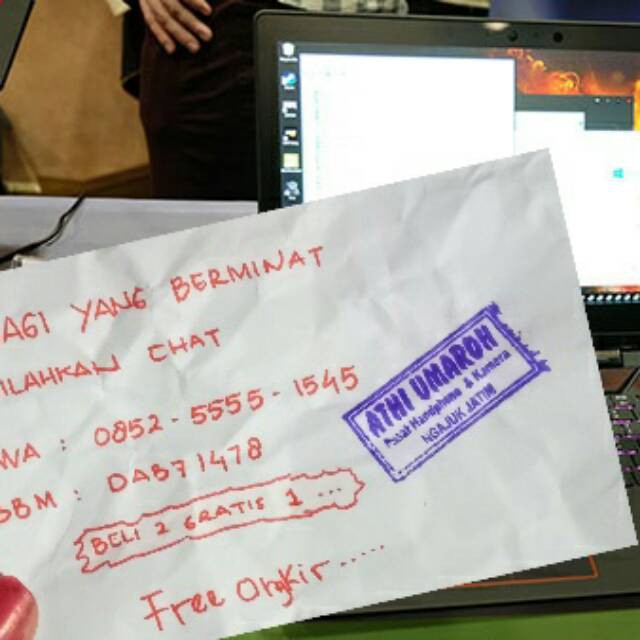 AGI YANG BERMINAT
ILAHKAN CHAT
WA : 0852-5555-1545
BBM : DAB71478
BELI 2 GRATIS 1 ...
Free Ongkir.....
ATHI UMAROH
Pusat Handphone & Kamera
NGAJUK JATIM